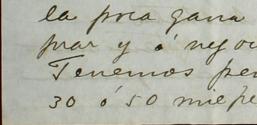 la poca gana
prar y ó nego
Tenemos pen
30 ó 50 mil pe